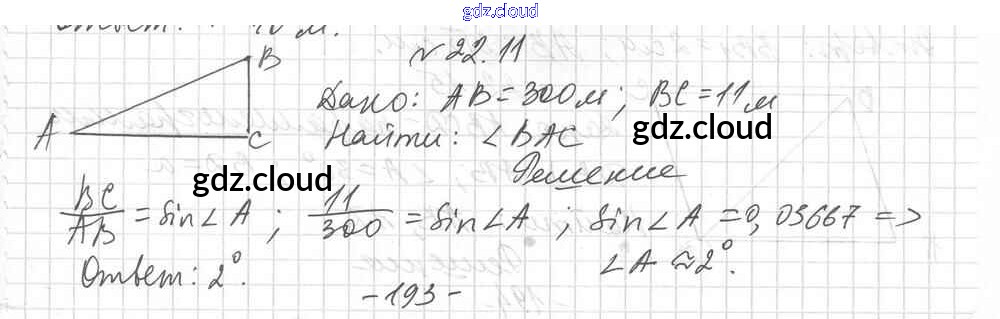 gdz.cloud
Ответ: 10 м.
№ 22.11
B
A
C
Дано: AB = 300 м; BC = 11 м
Найти: ∠BAC
gdz.cloud
Решение
gdz.cloud
BC/AB = sin∠A; 11/300 = sin∠A; sin∠A = 0,03667 =>
∠A ≈ 2°.
Ответ: 2°.
-193-